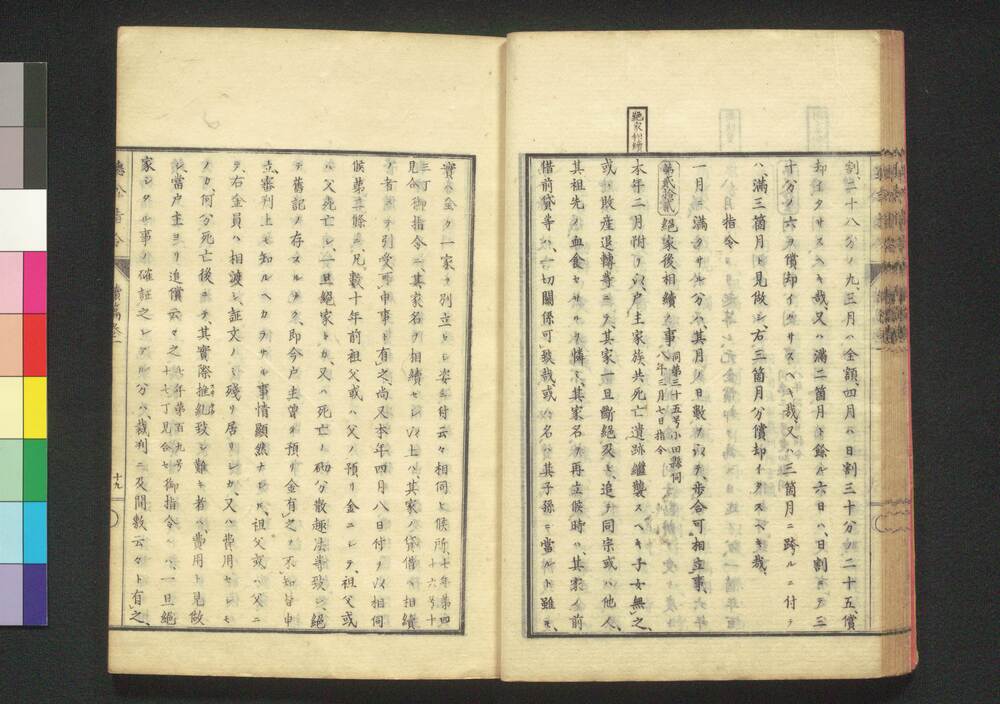 割、二十八分ノ九、三月ハ全額、四月ハ日割三十分ノ二十五、償
却イタサスヘキ哉、又ハ満二箇月ト餘ル六日ハ、日割ヲ以テ三
十分ノ六ヲ償却イタサスヘキ哉又ハ三箇月ニ跨ルニ付テ
ハ、満三箇月ト見做シ、右三箇月分償却イタスヘキ哉、
一月ニ満タサル分ハ其月ノ日數ヲ以テ、歩合可相立事、
絶家相續
第貳拾貳
絶家後相續ノ事
同第三十五号小田縣伺
八年三月七日指令
本年二月附ヲ以、戸主家族共死亡、遺跡繼襲スヘキ子女無之、
或ハ敗産退轉等ニテ、其家一旦斷絶及ヒ、追テ同宗或ハ他人、
其祖先ノ血食セサルヲ憐ミ、其家名ヲ再立候時ハ、其家ノ前
借前貸等ハ、一切關係可致哉、或ハ名ハ其子孫ニ當ルト雖モ、
實ハ全ク一家ヲ別立セシ姿ニ付云々相伺ヒ候所、七年第四
十六号十
三丁
見合御指令ニ、其家名ヲ相續セシ以上ハ其家ノ貸借ハ相續
ノ者ニテ引受可申事ト有之、尚又本年四月八日付ヲ以相伺
候第三條ニ、凡ソ數十年前祖父或ハ父ノ預リ金ニシテ、祖父或
ハ父死亡シ、一旦絶家トカ、又ハ死亡ノ砌分散趣法等致シ、絶
テ舊記ノ存スルナク、即今戸主曽テ預リ金有之ヲ不知旨申
立、審判上モ知ルヘカラサル事情顯然ナレハ、祖父或ハ父ニ
テ、右金員ハ相渡シ、証文ノミ殘リ居リシカ、又ハ費用セシモ
ノカ、何分死亡後ニテ、其實際推糺致シ難キ者ハ、費用ト見做
シ、當戸主ヨリ追償云々之
七年第百九号
十七丁見合セ
御指令ハ、一旦絶
家シタル事ノ確証之レナキ分ハ、裁判ニ及間數云々ト有之、
十九